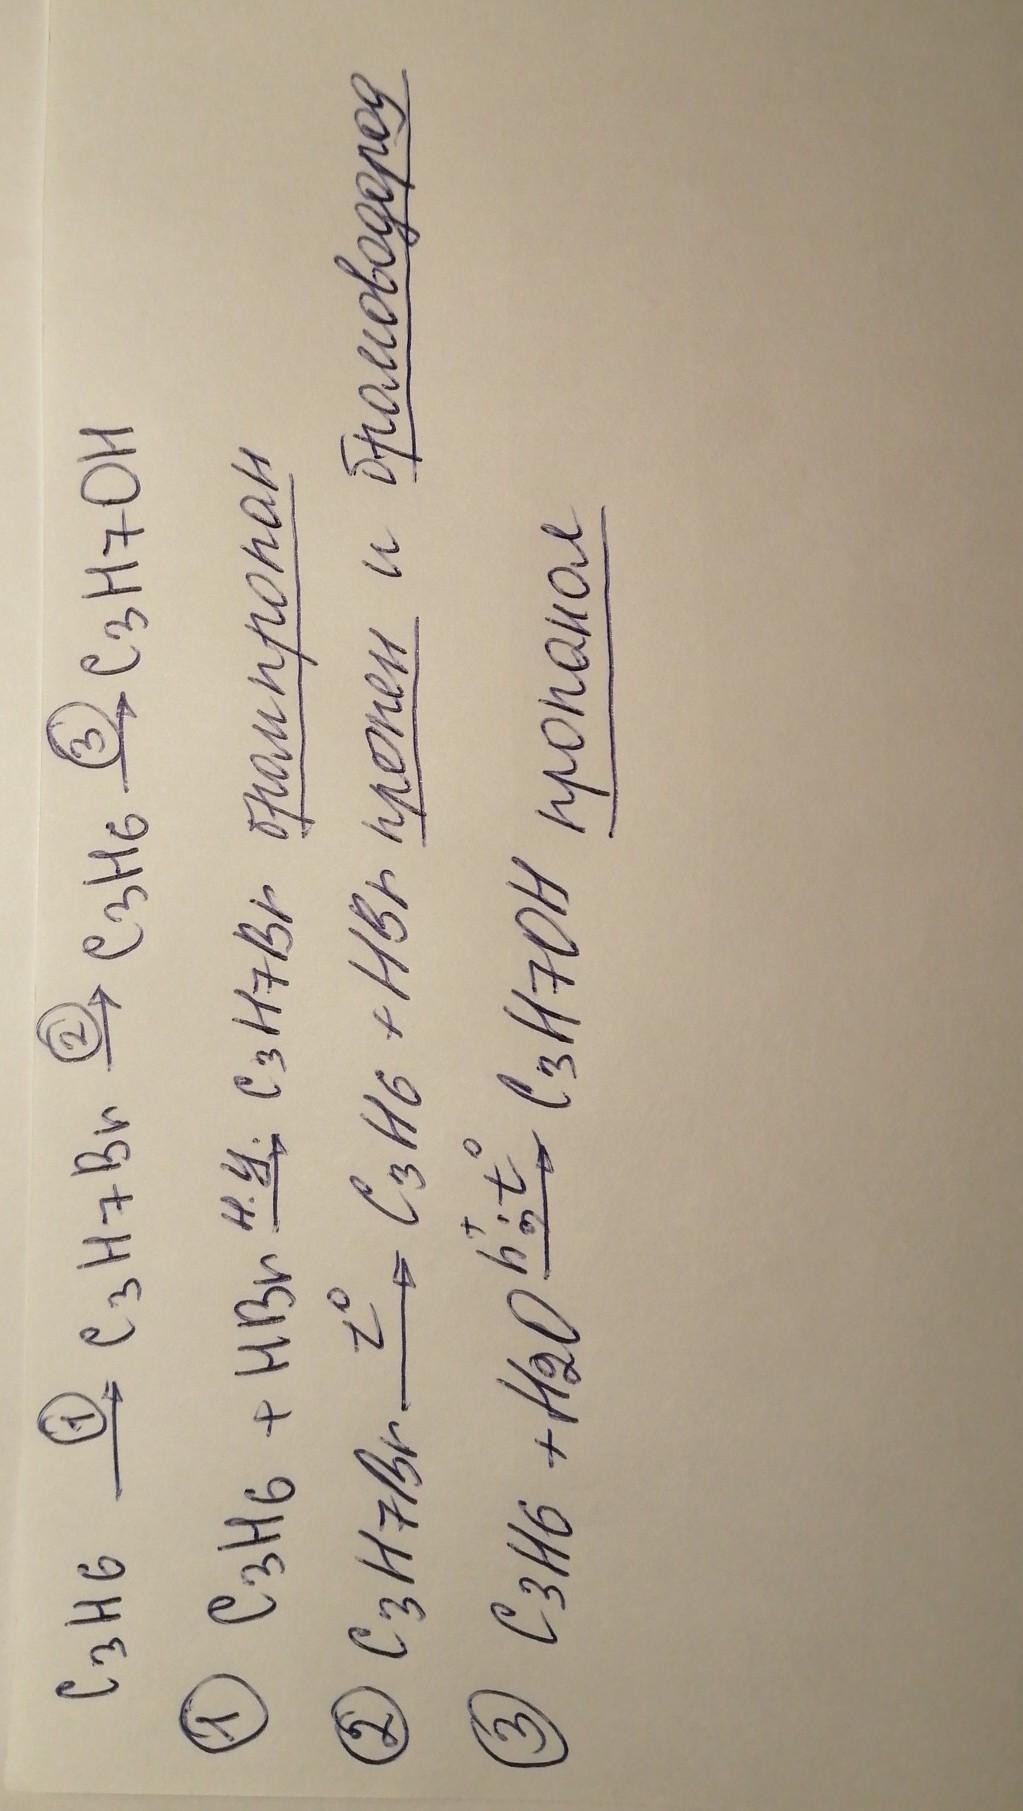 C3H6 —①→ C3H7Br —②→ C3H6 —③→ C3H7OH
① C3H6 + HBr —н.у.→ C3H7Br бромпропан
② C3H7Br —t°→ C3H6 + HBr пропен и бромоводород
③ C3H6 + H2O —h⁺, t°→ C3H7OH пропанол